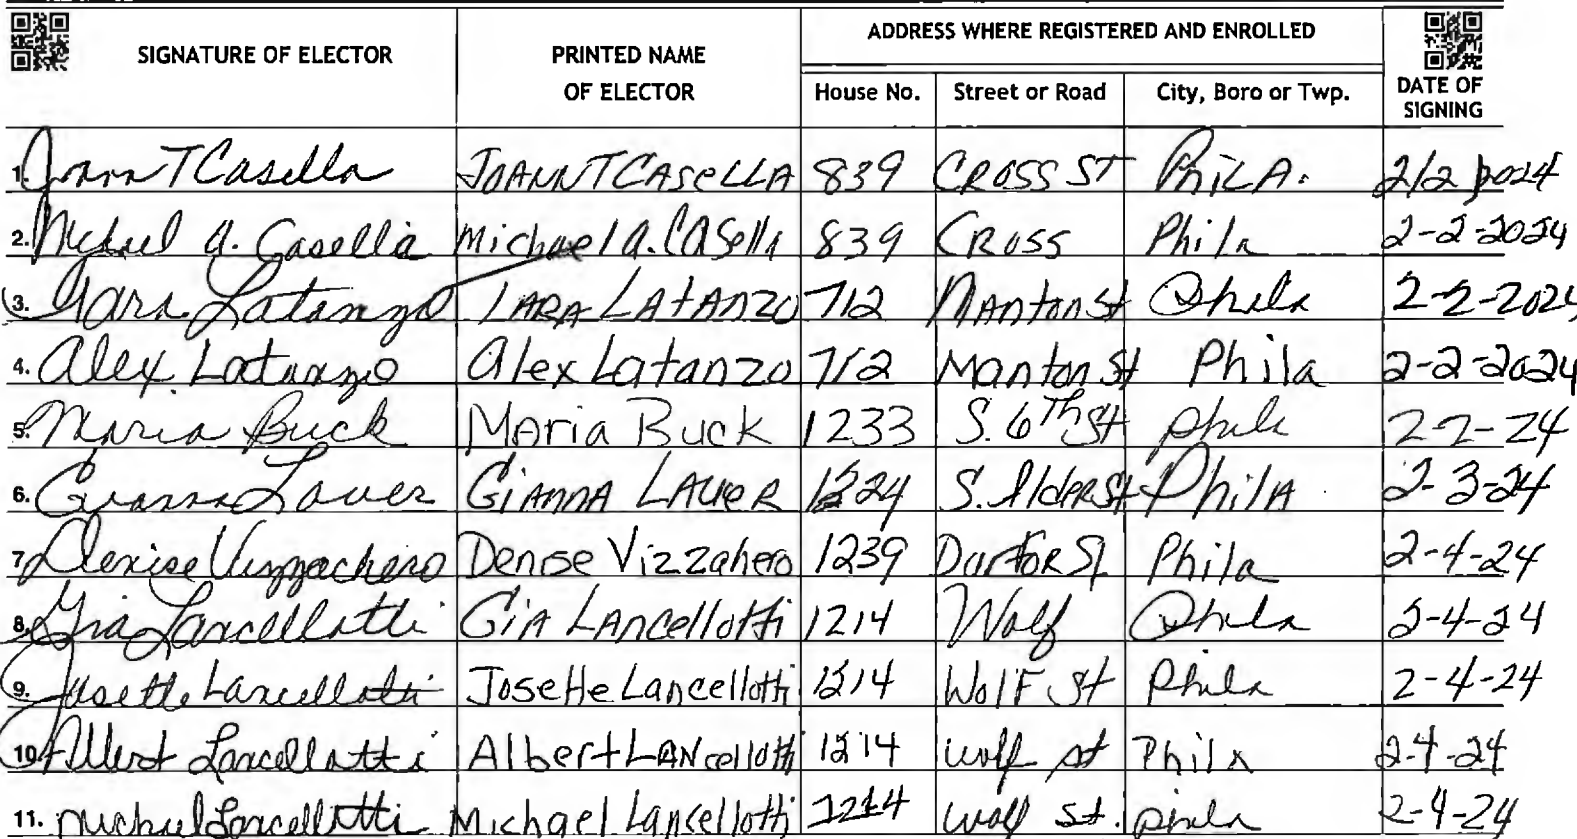 SIGNATURE OF ELECTOR
PRINTED NAME
OF ELECTOR
ADDRESS WHERE REGISTERED AND ENROLLED
House No. Street or Road City, Boro or Twp.
DATE OF
SIGNING
1. Joann T Casella JOANN T CASeLLA 839 CROSS ST PhiLA. 2/2 2024
2. Michael A. Casella Michael A. CASella 839 CROSS Phila 2-2-2024
3. Lara Latanzo LARA LAtANZO 712 MAntonSt Phila 2-2-2024
4. Alex Latanzo Alex Latanzo 712 Manton St Phila 2-2-2024
5. Maria Buck MAria Buck 1233 S. 6Th St phila 2-2-24
6. Gianna Lauer GiANNA LAUeR 1224 S. AldeRSt PhilA 2-3-24
7. Denise Vizzachero Denise Vizzahero 1239 St Phila 2-4-24
8. Gia Lancellotti GiA LAncellotti 1214 Wolf Phila 2-4-24
9. Josette Lancellotti Josette Lancellotti 1214 WolF St Phila 2-4-24
10. Albert Lancellotti Albert LANcellotti 1214 wolf st Phila 2-4-24
11. Michael Lancellotti Michael Lancellotti 1214 wolf st. phila 2-4-24